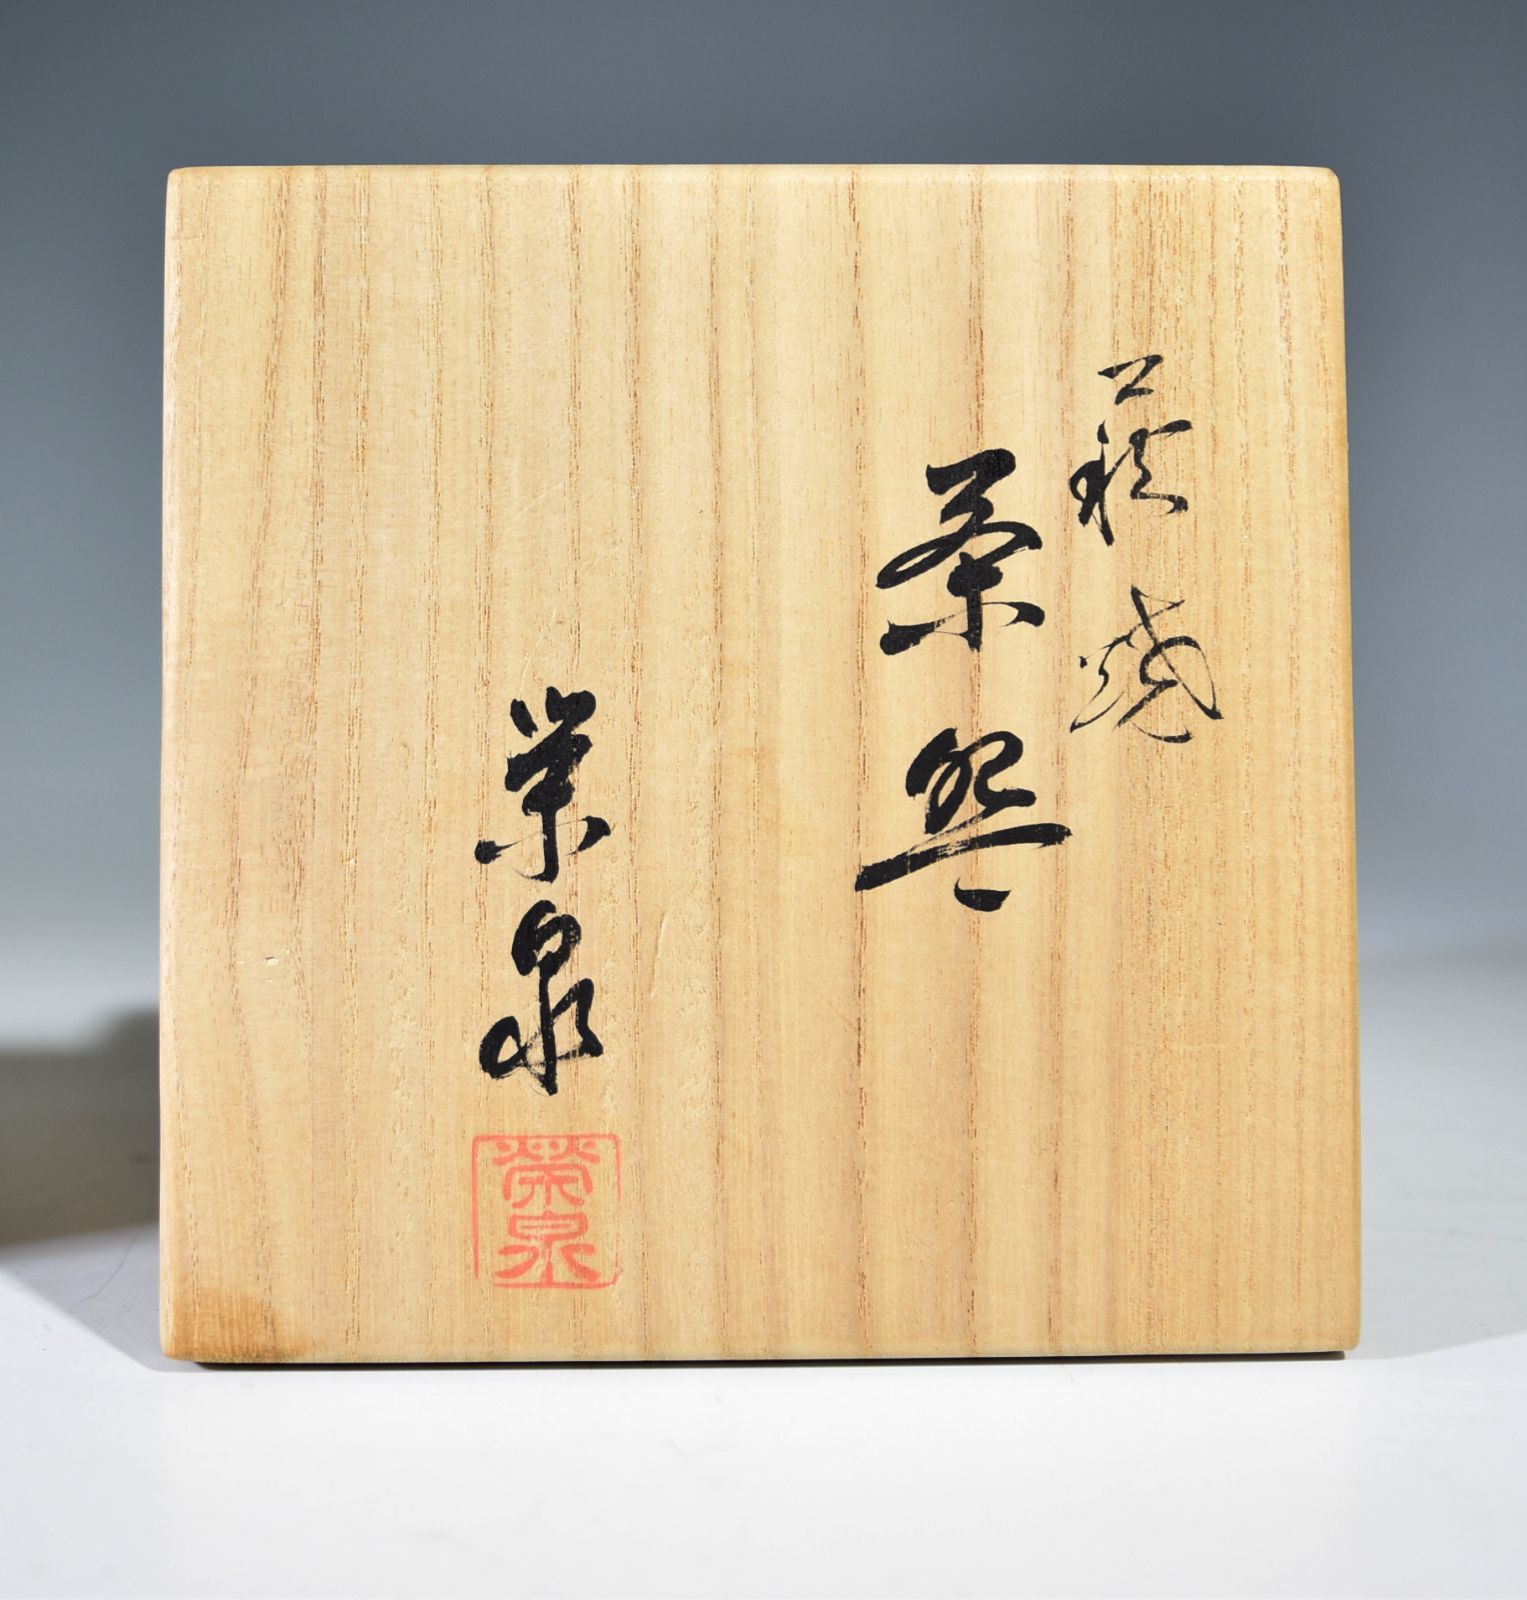 萩焼
茶盌
栄泉
榮泉